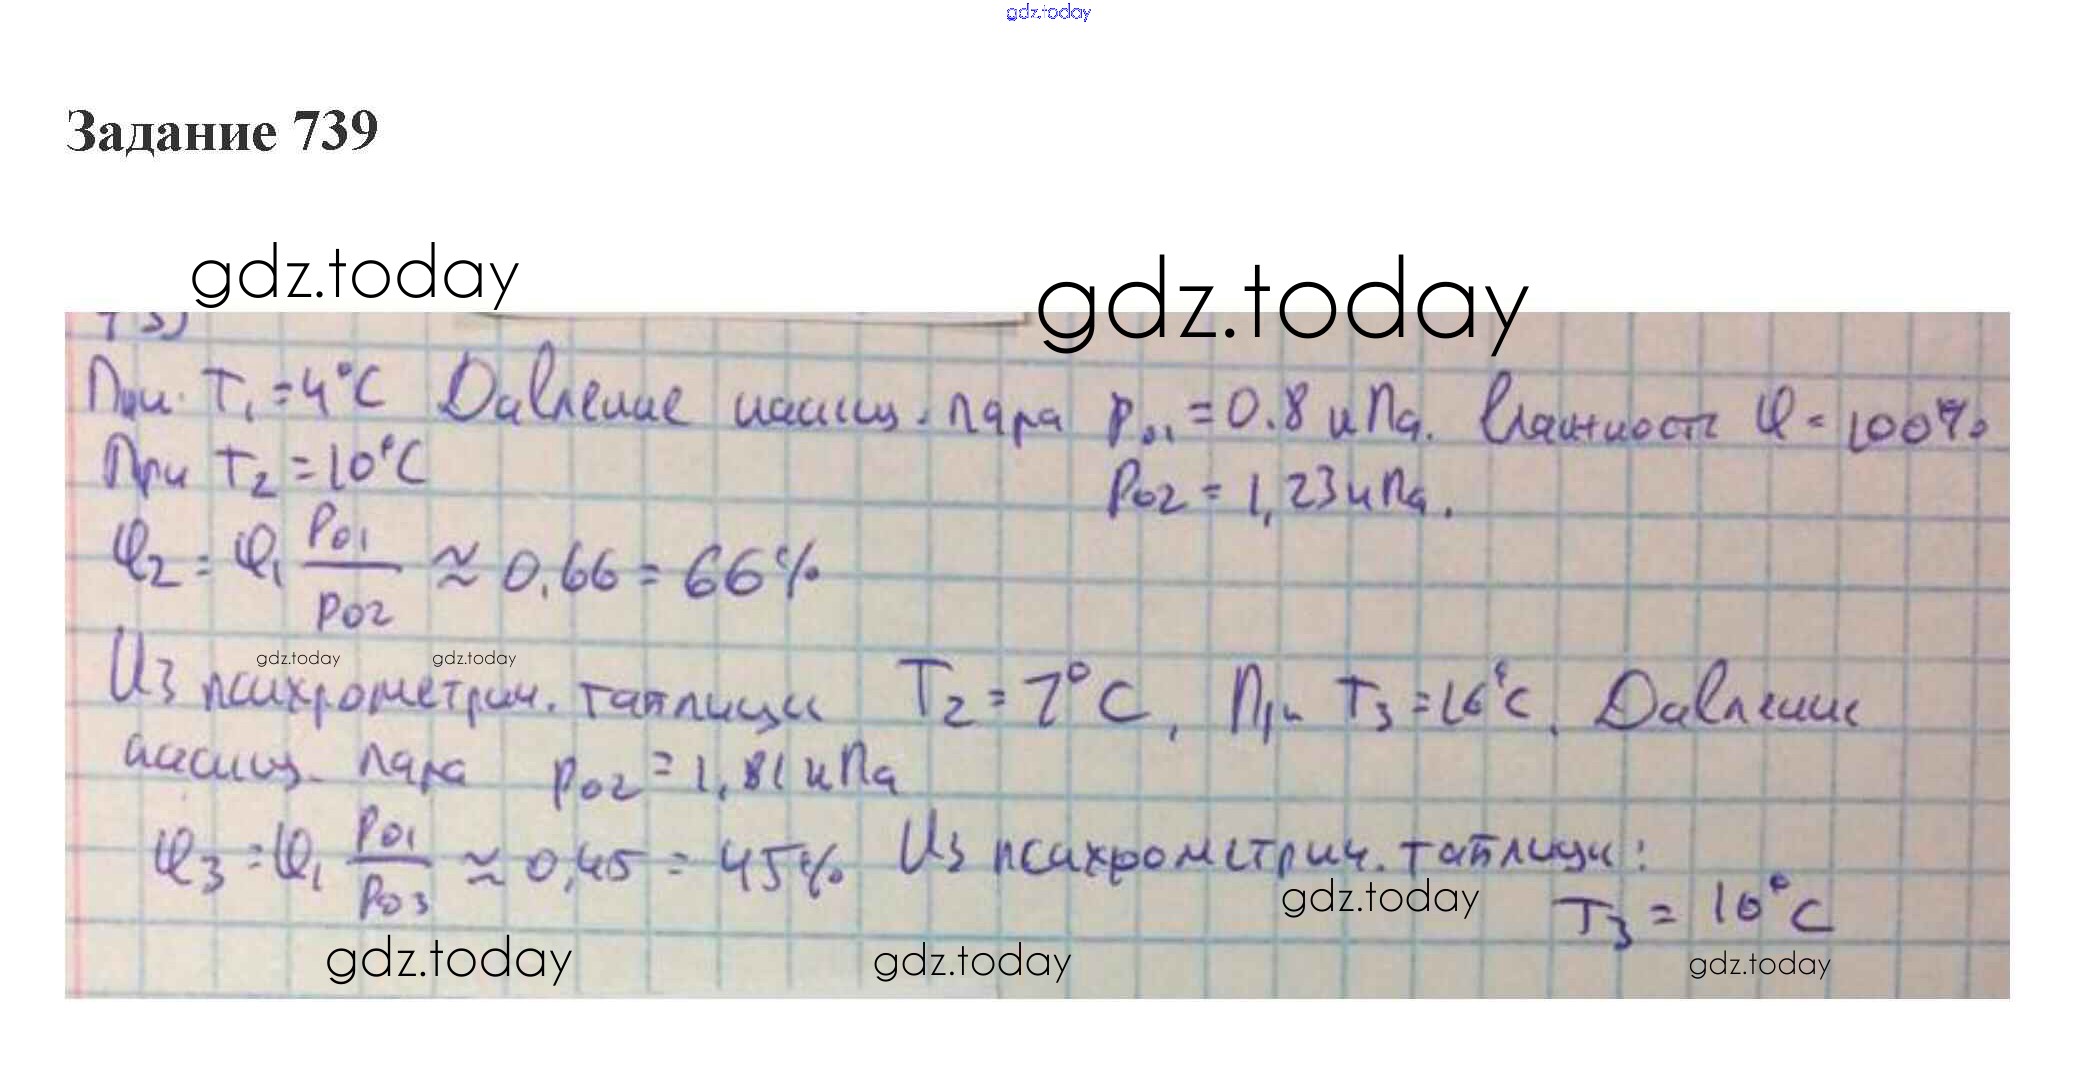 gdz.today
Задание 739
gdz.today gdz.today
При T₁ = 4°C Давление насыщ. пара p₀₁ = 0.8 кПа. Влажность φ = 100%
При T₂ = 10°C p₀₂ = 1,23 кПа.
φ₂ = φ₁ p₀₁/p₀₂ ≈ 0,66 = 66%
gdz.today gdz.today
Из психрометрич. таблицы T₂ = 7°C, При T₃ = 16°C. Давление
насыщ. пара p₀₂ = 1,81 кПа
φ₃ = φ₁ p₀₁/p₀₃ ≈ 0,45 = 45% Из психрометрич. таблицы:
gdz.today
T₃ = 10°C
gdz.today gdz.today gdz.today